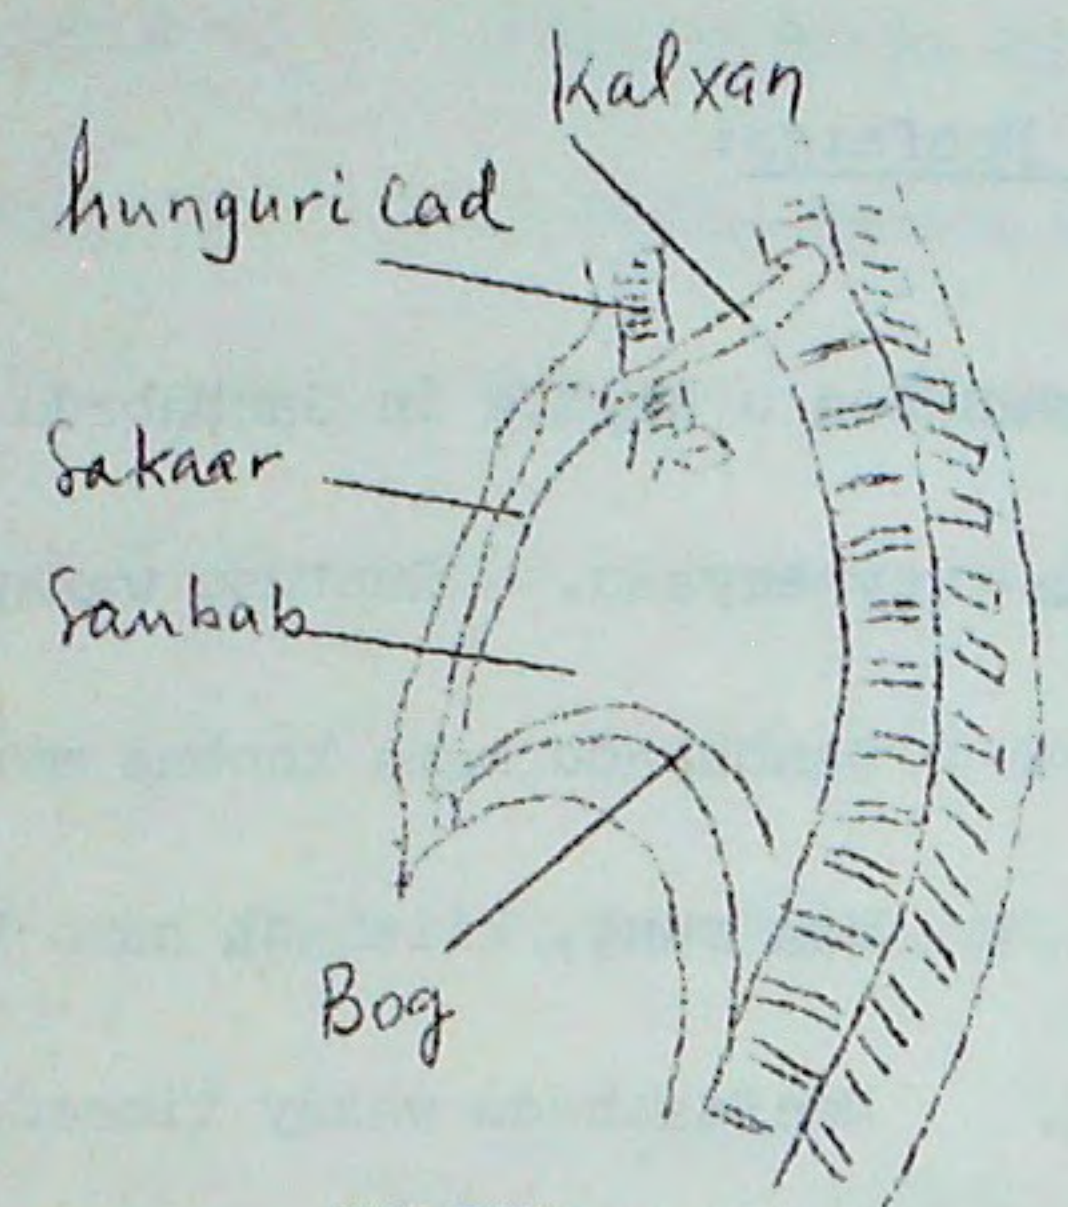 Kalxan
hunguri cad
Sakaar
Sanbab
Bog